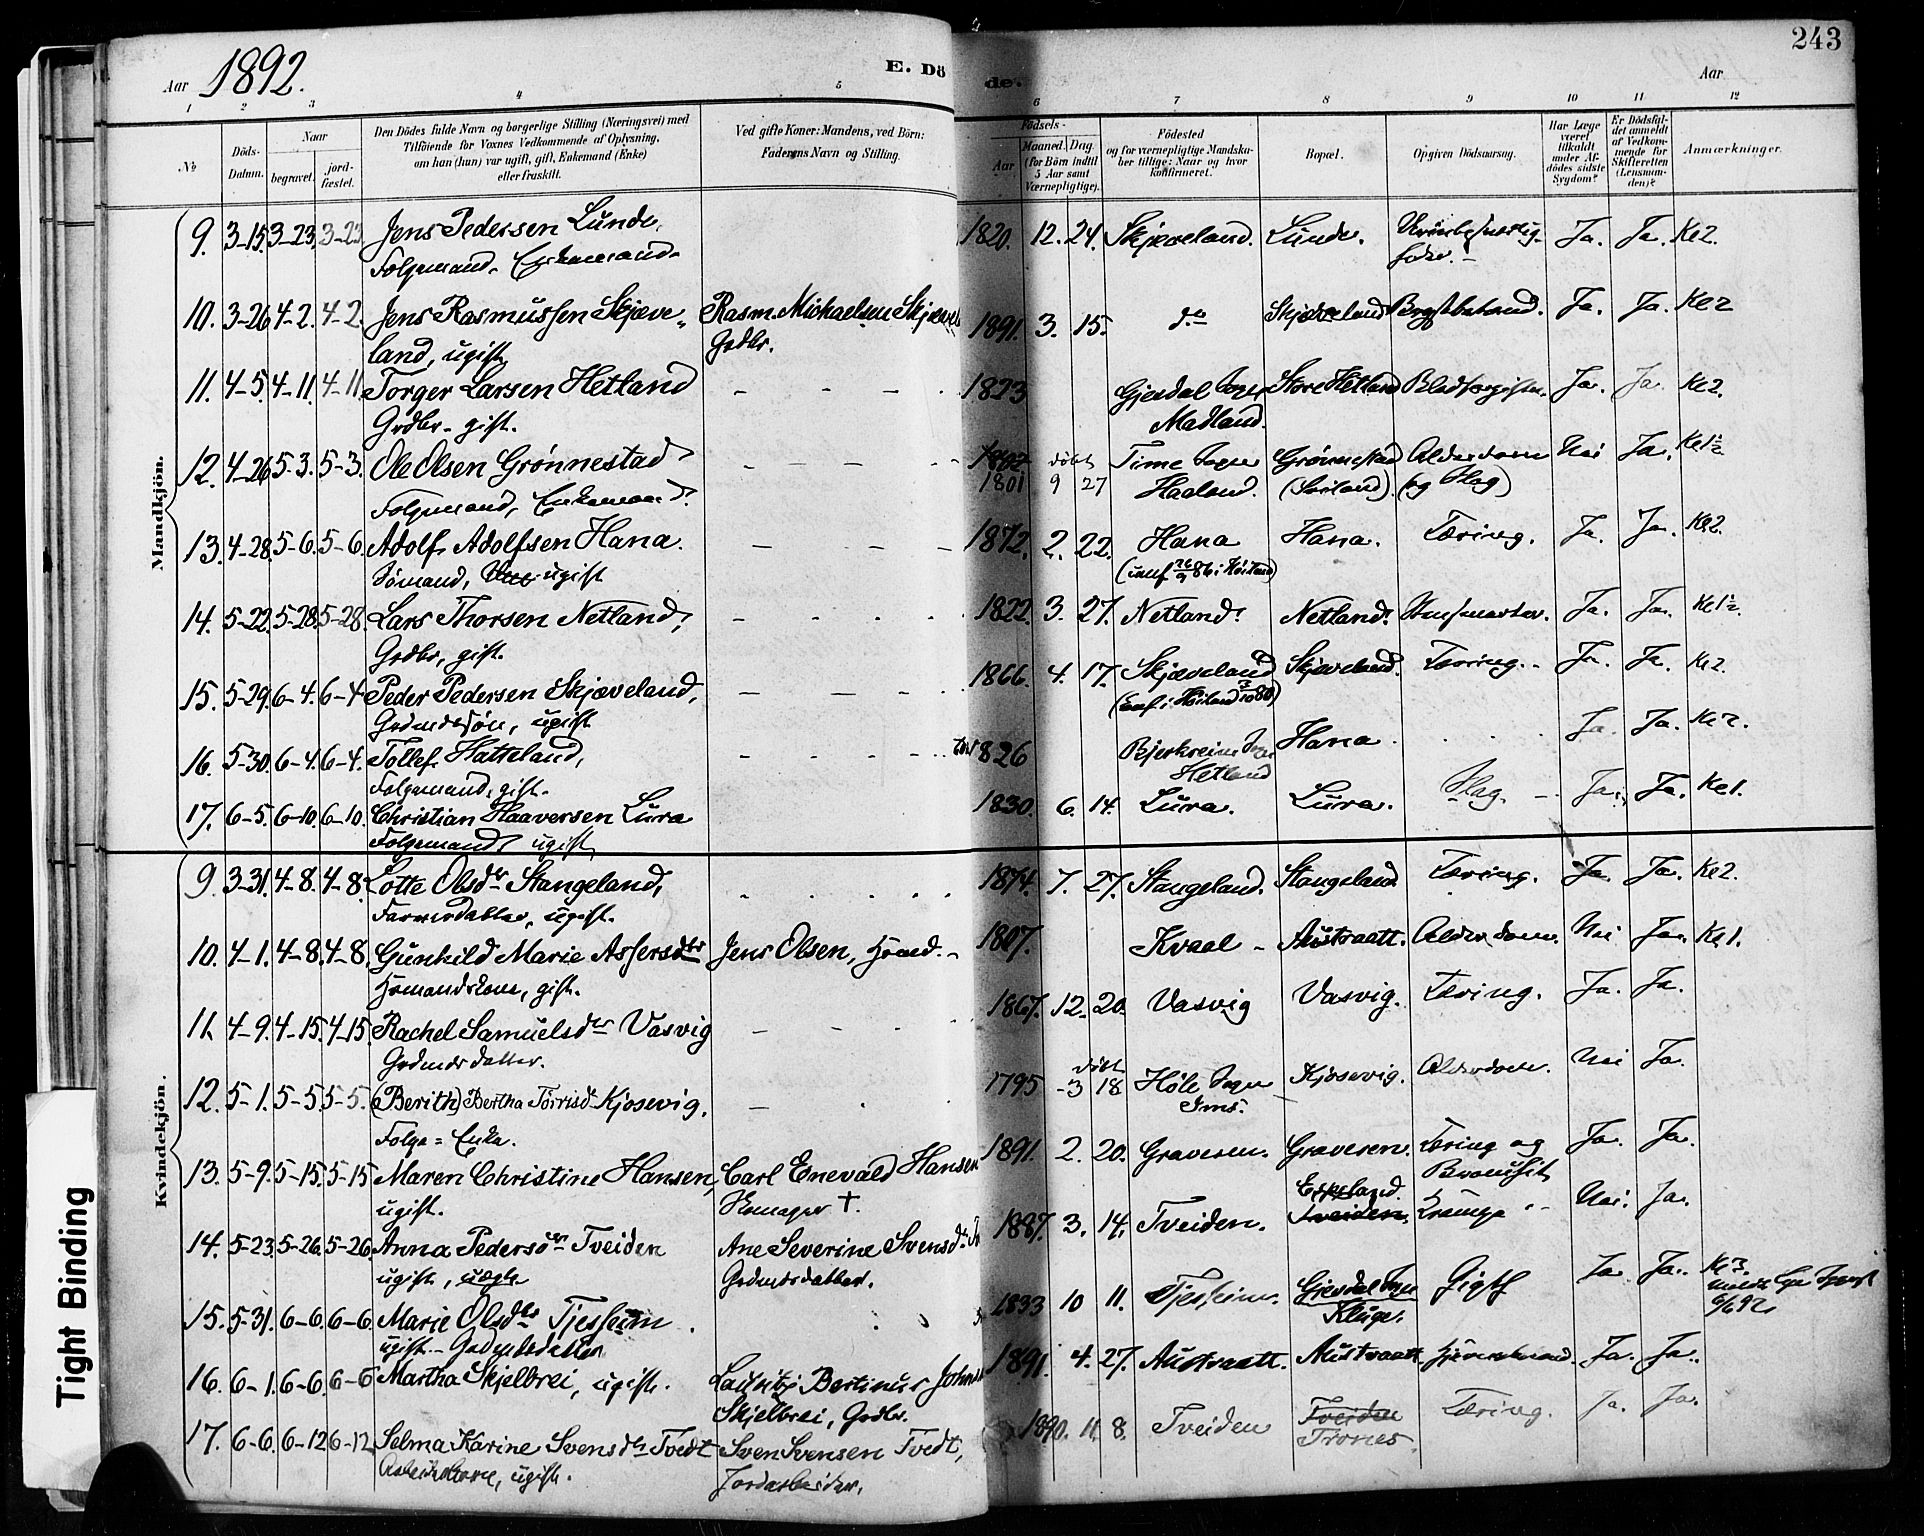 243
Aar 1892.
E. Dö
de.
Aar
1 2 3 4 5 6 7 8 9 10 11 12
No
Döds-Datum.
Naar
begravet.
jord-fæstet.
Den Dödes fulde Navn og borgerlige Stilling (Næringsvei) med
Tilföiende for Voxnes Vedkommende af Oplysning,
om han (hun) var ugift, gift, Enkemand (Enke)
eller fraskilt.
Ved gifte Koner: Mandens, ved Börn:
Faderens Navn og Stilling.
Födsels-
Aar
Maaned. Dag.
(for Börn indtil
5 Aar samt
Værnepligtige).
Födested
og for værnepligtige Mandska-
ber tillige: Naar og hvor
konfirmeret.
Bopæl.
Opgiven Dödsaarsag.
Har Læge
været
tilkaldt
under Af-
dödes sidste
Sygdom?
Er Dödsfal-
det anmeldt
af Vedkom-
mende for
Skifteretten
(Lensman-
den)?
Anmærkninger.
Mandkjön.
9. 3-15. 3-23. 3-23. Jens Pedersen Lunde, 1820. 12. 24. Skjæveland. Lunde. Ja. Ja. Kl 2.
Folgemand. Enkemand.
10. 3-26. 4-2. 4-2. Jens Rasmussen Skjæve- Rasm. Michaelsen Skjævel 1891. 3. 15. do Skjæveland Brystbetænd. Ja. Ja. Kl 2
land, ugift Grdbr.
11. 4-5. 4-11. 4-11 Torger Larsen Hetland 1823 Gjesdal Sogn Store Hetland Blodforgiftn. Ja. Ja. Kl 2.
Grdbr. gift. Madland.
12. 4-26. 5-3. 5-3. Ole Olsen Grønnestad 1802 döbt Time Sogn Grønnestad Alderdom Nei Ja. Kl 1½
Folgemand, Enkemand. 1801 9 27 Haaland. (Soiland). (og Slag)
13. 4-28. 5-6. 5-6. Adolf Adolfsen Hana. 1872. 2. 22. Hana Hana. Tæring. Ja. Ja. Kl 2.
Sömand, ugift (conf 26/9 86 i Höiland)
14. 5-22. 5-28. 5-28. Lars Thorsen Netland, 1822. 3. 27. Netland. Netland. Ja. Ja. Kl 1½.
Grdbr, gift.
15. 5-29. 6-4. 6-4 Peder Pedersen Skjæveland, 1866. 4. 17. Skjæveland Skjæveland. Tæring. Ja. Ja. Kl 2.
Grdmdssön, ugift (conf i Höiland 3/10 80)
16. 5-30. 6-4. 6-4. Tollef Hatteland, 1826 Bjerkreim Sogn Hana Ja. Ja. Kl 2.
Folgemand, gift. Hetland
17. 6-5. 6-10. 6-10. Christian Haaversen Lura 1830. 6. 14. Lura. Lura. Slag. Ja. Ja. Kl 1.
Folgemand ugift
Kvindekjön.
9. 3-31. 4-8. 4-8. Lotte Olsdtr Stangeland, 1874. 7. 27. Stangeland. Stangeland Tæring. Ja. Ja. Kl 2.
ugift.
10. 4-1. 4-8. 4-8. Gunhild Marie Assersdtr Jens Olsen, Hsmd. 1807. Kvaal Austraatt. Alderdom. Nei Ja. Kl 1.
Hsmandskone, gift.
11. 4-9. 4-15. 4-15. Rachel Samuelsdtr Vasvig 1867. 12. 20. Vasvig Vasvig. Tæring. Ja. Ja.
Grdmdsdatter.
12. 5-1. 5-5. 5-5. (Berith) Bertha Törrisd. Kjosevig. 1795 döbt 3 18 Höle Sogn Kjosevig. Alderdom. Nei Ja.
Folge-Enke. Ims.
13. 5-9. 5-15. 5-15 Maren Christine Hansen, Carl Enevald Hansen 1891. 2. 20. Graveren. Graveren. Tæring og Ja. Ja.
ugift. Skomager †. Bronchit
14. 5-23. 5-26. 5-26. Anna Pedersön Tveiden Ane Severine Svensd. 1887. 3. 14. Tveiden. Tveiden. Krampe Nei. Ja.
ugift, uægte Grdmdsdatter.
15. 5-31. 6-6. 6-6. Marie Olsdtr Tjessem 1833 10 11. Tjesseim. Gjesdal Sogn Gigt Ja Ja. Kl 3.
ugift. Grdmdsdatter Kluge. 9/6 92.
16. 6-1. 6-6. 6-6 Martha Skjelbrei, ugift. Lauritz Bertinus Johns 1891. 4. 27. Austraatt. Austraatt. Ja. Ja.
Skjelbrei, Grdbr.
17. 6-6. 6-12 6-12 Selma Karine Svensdtr Tvedt Sven Svensen Tvedt, 1890. 11. 8. Tveiden Tveiden Tæring. Ja. Ja.
ugift. Jordarbeider. Trones.
Tight Binding